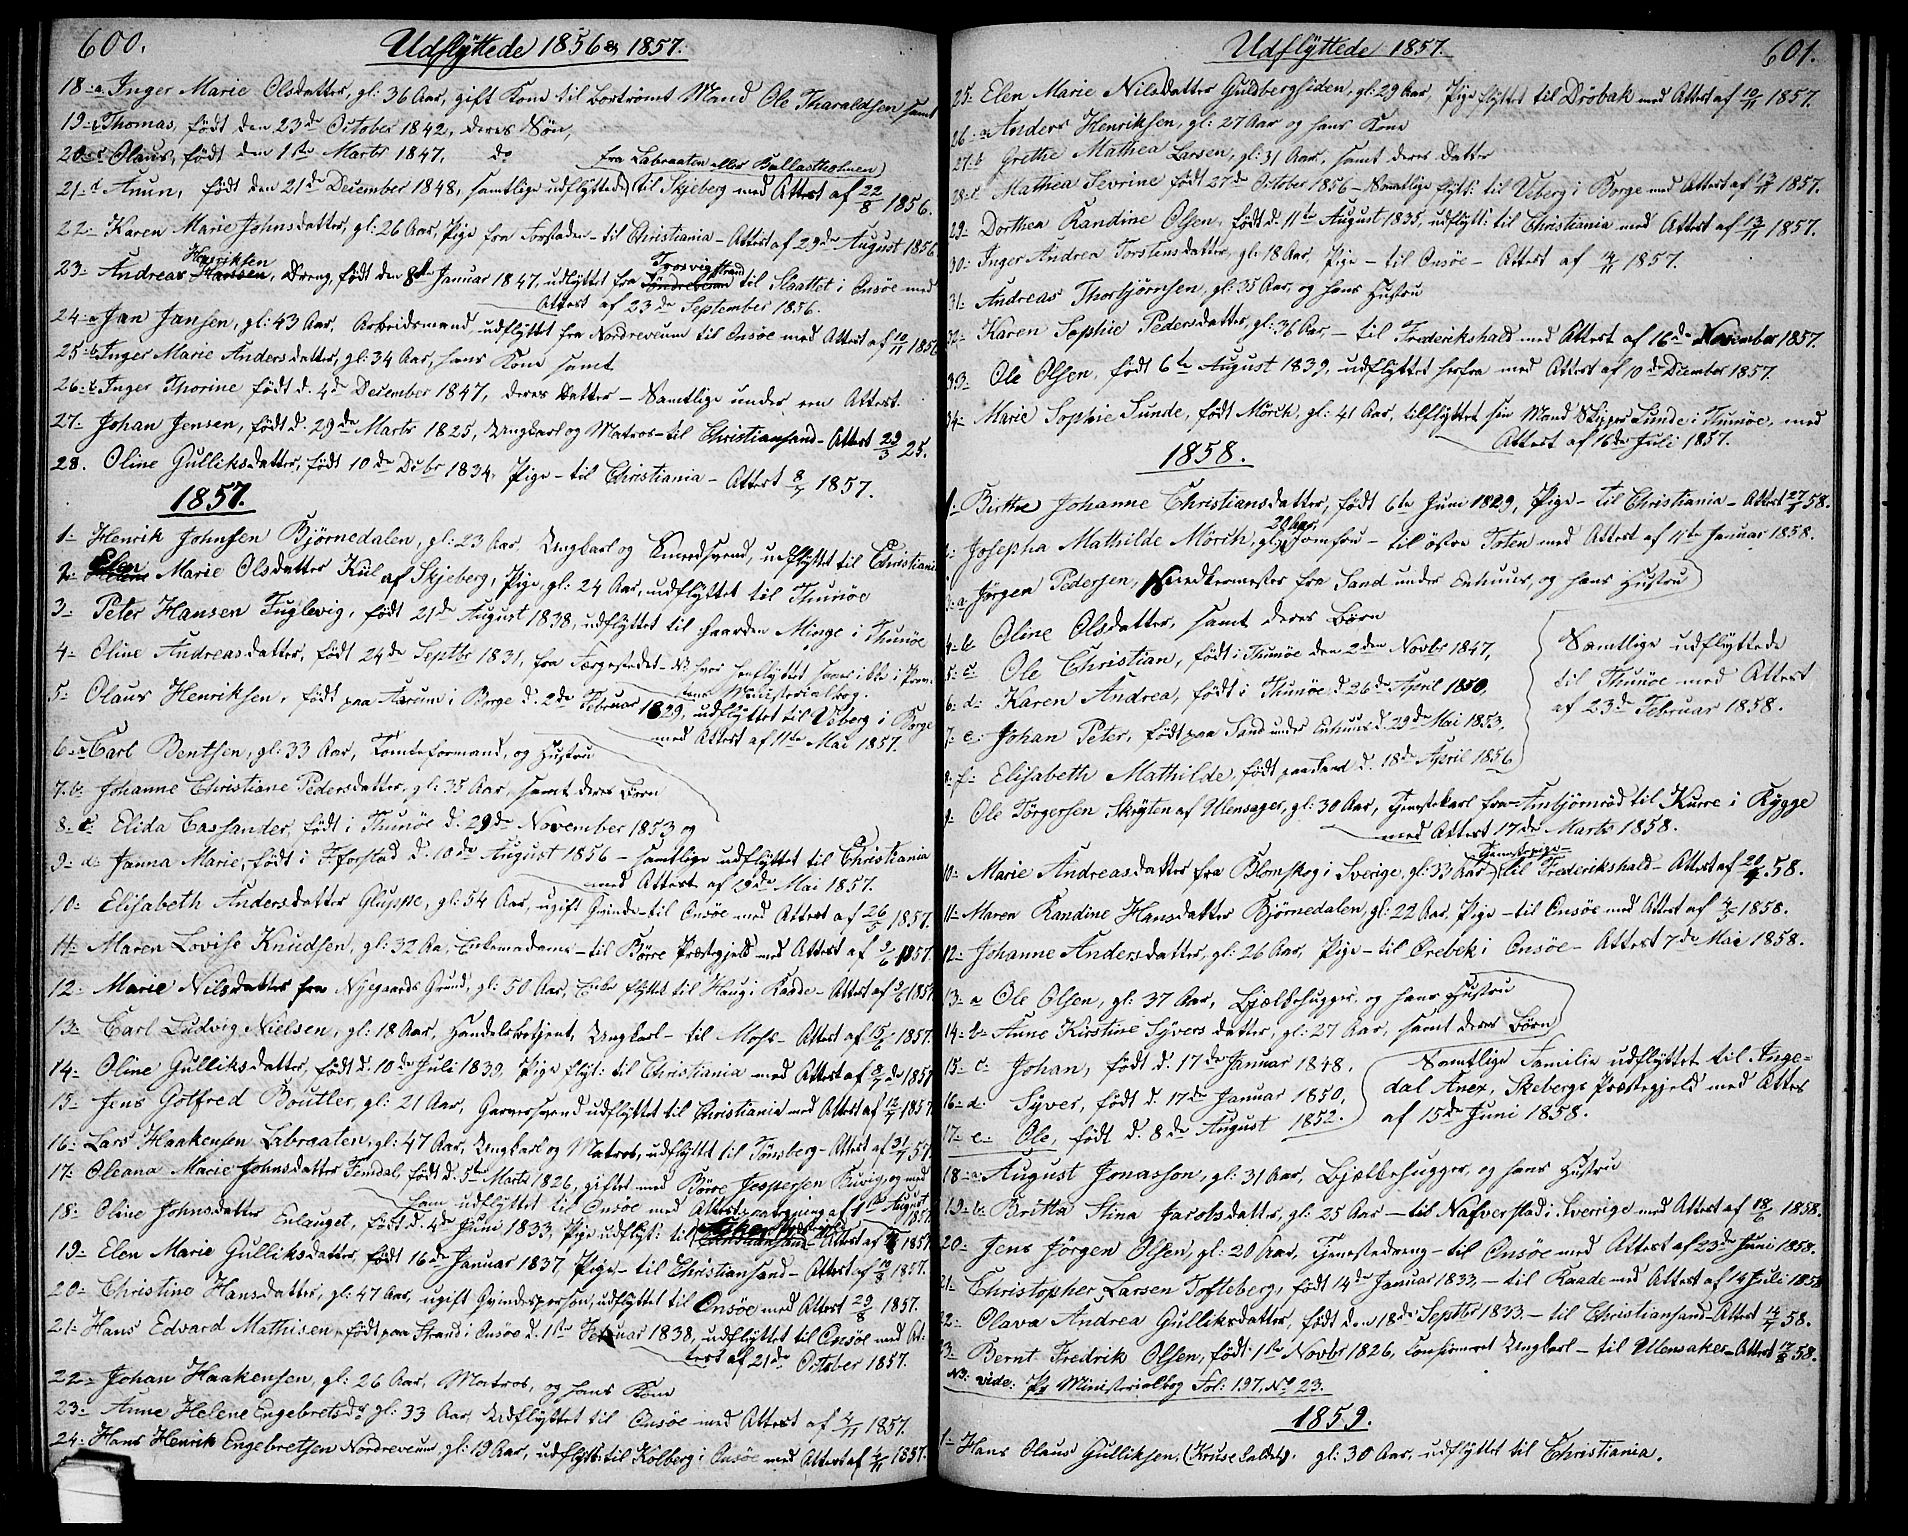 600.
Udflyttede 1856 & 1857.
18-a Inger Marie Olsdatter, gl: 36 Aar, gift Kone til bortrømt Mand Ole Tharaldsen samt
19-b Thomas, født den 23de October 1842, deres Søn,
20-c Olaus, født den 1ste Marts 1847, do
fra Labraaten eller Ballastholmen
21-d Anun, født den 21de December 1848, samtlige udflyttede til Skjeberg med Attest af 22/8 1856.
22- Karen Marie Johnsdatter, gl: 26 Aar, Pige fra Forstaden - til Christiania - Attest af 29de August 1856
Henriksen Trosvigstrand
23- Andreas Hansen, Dreng, født den 8de Januar 1847, udflyttet fra til Slaattet i Onsøe med
Attest af 23de September 1856.
24-a Jan Jansen, gl: 43 Aar, Arbeidsmand, udflyttet fra Nordreveum til Onsøe med Attest af 10/11 1856
25-b Inger Marie Andersdatter, gl: 34 Aar, hans Kone samt
26-c Inger Thorine født d. 4de December 1847, deres Datter - Samtlige under een Attest.
27- Johan Jensen, født d. 29de Marts 1825, Ungkarl og Matros - til Christiansand - Attest 29/3 25.
28. Oline Gulliksdatter, født 10de Debr 1834, Pige - til Christiania - Attest 8/7 1857.
1857.
1- Henrik Johnsen Bjørnedalen, gl: 23 Aar, Ungkarl og Smedsvend, udflyttet til Christiania
Elen
2- Marie Olsdatter Kul af Skjeberg, Pige, gl: 24 Aar, udflyttet til Thunøe
3- Peter Hansen Fuglevig, født 21de August 1838, udflyttet til Gaarden Minge i Thunøe
4- Oline Andreasdatter, født 24de Septbr 1831, fra Færgestedet - No hvor
Ministerialbog.
5- Olaus Henriksen, født paa Aarum i Borge d. 2de Februar 1829, udflyttet til Veberg i Borge
med Attest af 11te Mai 1857.
6-a Carl Bentsen, gl: 33 Aar, Tomteformand, og Hustru
7.b. Johanne Christiane Pedersdatter, gl: 35 Aar, samt deres Børn
8-c. Elida Cassander, født i Thunøe d. 29de November 1853 og
9- d. Janna Marie, født i F.forstad d. 10de August 1856 - samtlige udflyttet til Christiania
med Attest af 29de Mai 1857.
10- Elisabeth Andersdatter Gluppe, gl: 54 Aar, ugift Qvinde - til Onsøe med Attest af 26/5 1857.
11- Maren Lovise Knudsen, gl: 32 Aar, Enkemadame - til Børre Præstegjeld med Attest af 2/6 1857.
12- Marie Nilsdatter fra Nygaards Grund, gl: 50 Aar, Enke flyttet til Haug i Raade - Attest af 5/6 1857
13- Carl Ludvig Nielsen, gl: 18 Aar, Handelsbetjent, Ungkarl - til Moss - Attest af 15/6 1857.
14- Oline Gulliksdatter, født d. 10de Juli 1839, Pige flyt: til Christiania med Attest af 8/7 1857
15- Jens Gotfred Boutler, gl: 21 Aar, Garversvend udflyttet til Christiania med Attest af 12/7 1857.
16- Lars Haakensen Labraaten, gl: 47 Aar, Ungkarl og Matros, udflyttet til Tønsberg - Attest af 31/7 57.
17- Oleana Marie Johnsdatter Femdal, født d. 5te Marts 1826, giftet med Børre Jespersen Kivig, og med
ham udflyttet til Onsøe med Attestpaategning af 1ste August 1857.
18- Oline Johnsdatter Enhuuset, født d. 4de Juni 1833, Pige udflyt: til Attest af 1857
19- Elen Marie Gulliksdatter, født 16de Januar 1837, Pige - til Christiansand - Attest af 10/8 1857.
20- Christine Hansdatter, gl: 47 Aar, ugift Qvindeperson, udflyttet til Onsøe med Attest 29/8 1857.
21- Hans Edvard Mathisen, født paa Strand i Onsøe d. 1ste Februar 1838, udflyttet til Onsøe med At-
test af 21de October 1857.
22- Johan Haakensen, gl: 26 Aar, Matros, og hans Kone
23- Anne Helene Engebretsdr gl: 33 Aar, Udflyttet til Onsøe med Attest af 4/11 1857.
24- Hans Henrik Engebretsen Nordreveum, gl: 19 Aar, udflytt: til Kolberg i Onsøe med Attest af 4/11 1857.
Udflyttede 1857.
601.
25- Elen Marie Nilsdatter Guldbergsiden, gl: 29 Aar, Pige flyttet til Drøbak med Attest af 10/11 1857.
26- a Anders Henriksen, gl: 27 Aar og hans Kone
27-b Grethe Mathea Larsen, gl: 31 Aar, samt deres Datter
28-c Mathea Sevrine født 27de October 1856 - Samtlige flytt: til Veberg i Borge med Attest af 12/11 1857.
29- Dorthea Randine Olsen, født d. 11te August 1835, udflytt: til Christiania med Attest af 13/11 1857.
30- Inger Andrea Torstensdatter, gl: 18 Aar, Pige - til Onsøe - Attest af 14/11 1857.
31- Andreas Thorbjørnsen, gl: 35 Aar, og hans Hustru
32- Karen Sophie Pedersdatter, gl: 36 Aar, - til Frederikshald med Attest af 16de November 1857.
33- Ole Olsen, født 6te August 1839, udflyttet herfra med Attest af 10de December 1857.
34- Marie Sophie Lunde, født Mörch, gl: 41 Aar, tilflyttet sin Mand Skipper Lunde i Thunøe, med
Attest af 16de Juli 1857.
1858.
1- Birthe Johanne Christiansdatter, født 6te Juni 1829, Pige - til Christiania - Attest 27/1 58.
20 Aar
2- Josepha Mathilde Mörch, gl: Jomfru - til østre Toten med Attest af 11te Januar 1858.
3-a Jørgen Pedersen, Snedkermester fra Sand under Enhuus, og hans Hustru
4-b Oline Olsdatter, samt deres Børn
5-c. Ole Christian, født i Thunøe den 2den Novbr 1847,
6- d- Karen Andrea, født i Thunøe d. 26de April 1850,
7- e- Johan Peter, født paa Sand under Enhuus d. 29de Mai 1853,
8- f- Elisabeth Mathilde, født paa Sand d. 18de April 1856
Samtlige udflyttede
til Thunøe med Attest
af 23de Februar 1858.
9- Ole Törgersen Skryten af Ulensager, gl: 30 Aar, Tjenestekarl fra Ambjørnrød til Kurre i Rygge
med Attest 17de Marts 1858.
Tjenestepige -
10- Marie Andreasdatter fra Blomskog i Sverige, gl: 33 Aar, til Frederikshald - Attest af 20/4 58.
11- Maren Randine Hansdatter Bjørnedalen, gl: 22 Aar, Pige - til Onsøe med Attest af 4/5 1858.
12- Johanne Andersdatter, gl: 26 Aar, Pige - til Orebek i Onsøe - Attest 7de Mai 1858.
13- a Ole Olsen, gl: 37 Aar, Bjælkehugger, og hans Hustru
14- b- Anne Kirstine Syversdatter, gl: 27 Aar, samt deres Børn
15- c- Johan, født d. 17de Januar 1848,
16- d- Syver, født d. 17de Januar 1850,
17- e- Ole, født d. 8de August 1852.
Samtlige Familie udflyttet til Inge-
dal Anex, Skebergs Præstegjeld med Attest
af 15de Juni 1858.
18-a August Jonasson, gl: 31 Aar, Bjælkehugger, og hans Hustru
19-b- Britta Stina Jacobsdatter, gl: 25 Aar - til Nafverstad i Sverrige med Attest af 18/6 1858.
20- Jens Jörgen Olsen, gl: 20 Aar, Tjenestedreng - til Onsøe med Attest af 23de Juni 1858.
21- Christopher Larsen Tofteberg, født 14de Januar 1833 - til Raade med Attest af 14 Juli 1858
22- Olava Andrea Gulliksdatter, født den 18de Septbr 1833 - til Christiansand - Attest 14/7 58.
23- Bernt Fredrik Olsen, født 1ste Novbr 1826, Confirmeret Ungkarl - til Ullensaker - Attest 17/8 58.
NB: vide: Pr Ministerialbog Fol: 197, No 23.
1859.
1- Hans Olaus Gulliksen, (Kruse kaldet), gl: 30 Aar, udflyttet til Christiania.